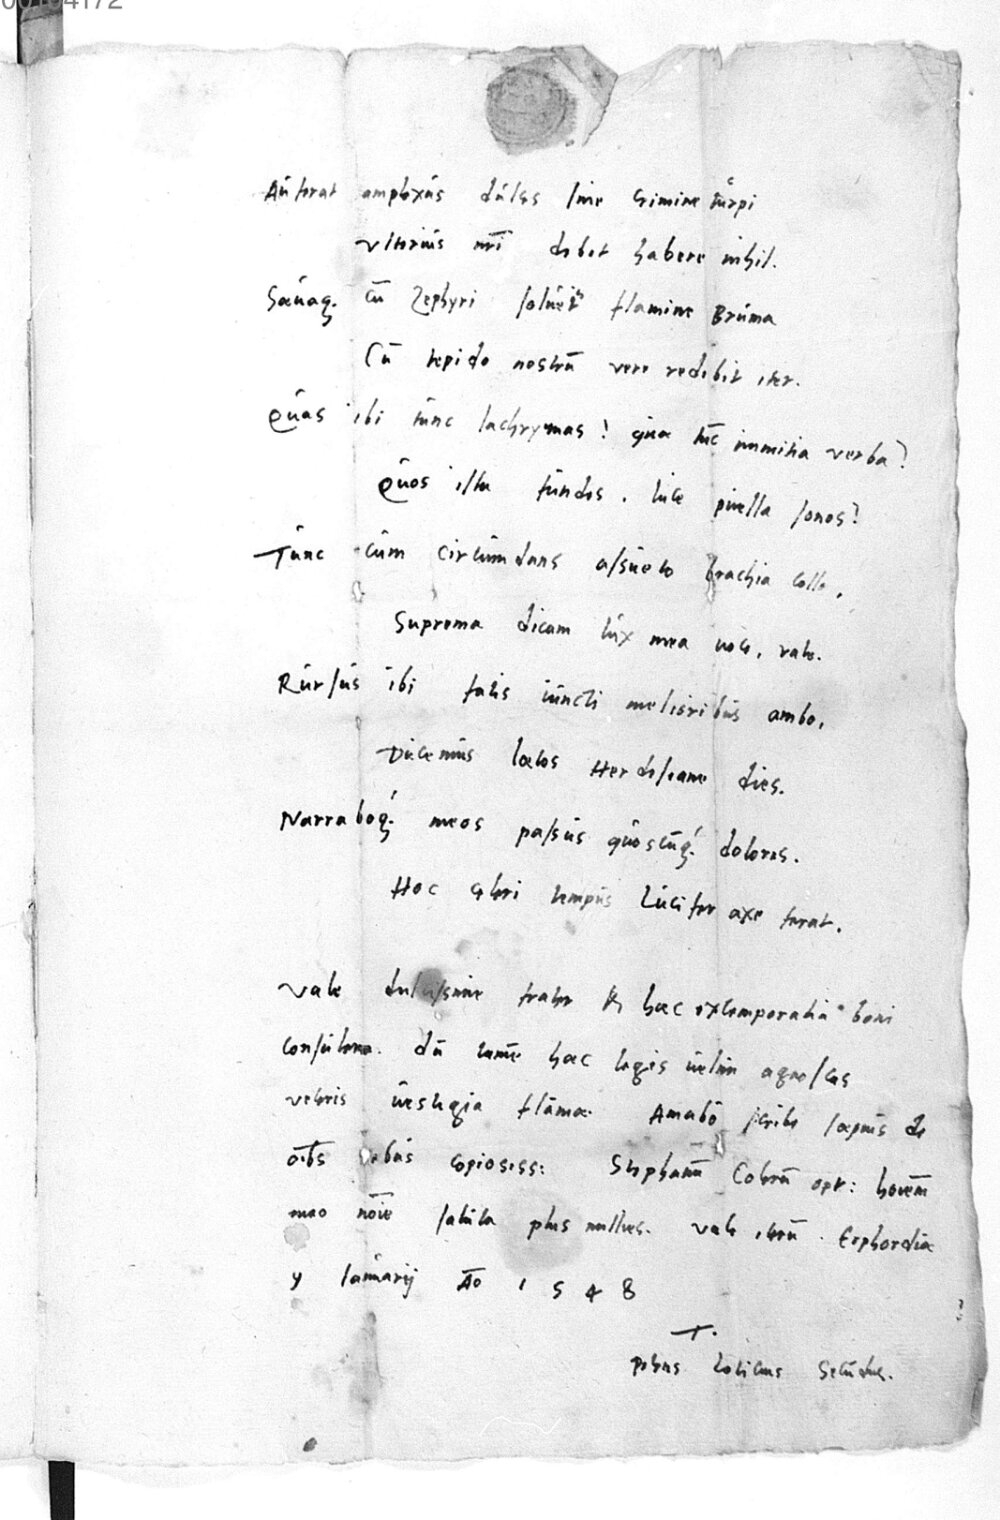 00104172
Auferat amplexus dulces sine crimine turpi
Vlterius nrī debet habere nihil.
Sæuaq; Cū Zephyri soluet flamine Bruma
Cū tepido nostrū vere redibit iter.
Quas ibi tunc lachrymas! quæ tūc immitia verba?
Quos illa fundes, luce puella sonos?
Tunc cum circumdans assueto brachia collo,
Suprema dicam lux mea uoce, vale.
Rursus ibi fatis iuncti melioribus ambo,
Ducemus lætos Herdesiane dies.
Narraboq; meos passus quoscūq; dolores.
Hoc celeri tempus Lucifer axe ferat.
Vale dulcissime frater & hæc extemporalia boni
consulere. dū tamē hæc legis uelim agnoscas
veteris uestigia flāmæ. Amabo scribe sæpius de
oībs rebus copiosiss: Stephanū opt: iuvenē
meo noīe saluta plus millies. vale iterū. Erphordiæ
y Ianuarij Ao 1 5 4 8
T.
Petrus Lotichius Secūdus.